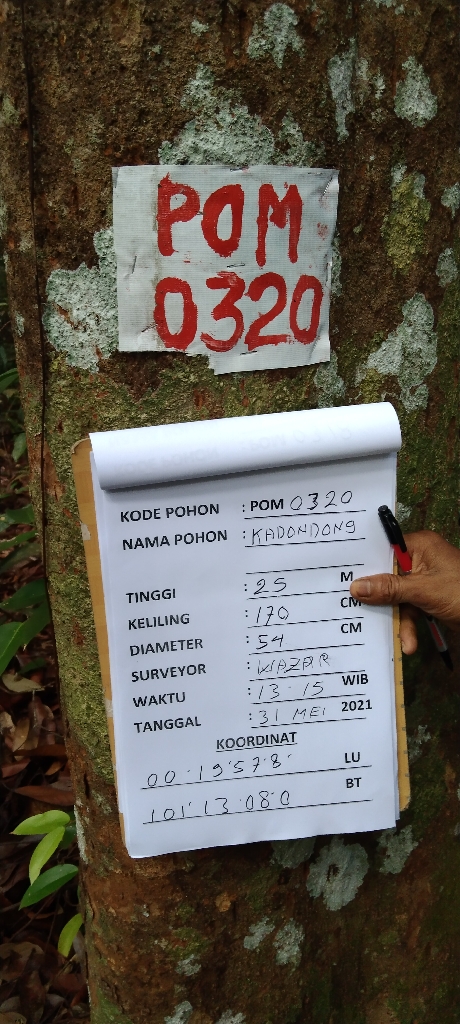 POM
0320
KODE POHON : POM 0320
NAMA POHON : KADONDONG
TINGGI : 25 M
KELILING : 170 CM
DIAMETER : 54 CM
SURVEYOR : WAZAR
WAKTU : 13 15 WIB
TANGGAL : 31 MEI 2021
KOORDINAT
00°19'57.8" LU
101°13'08.0 BT